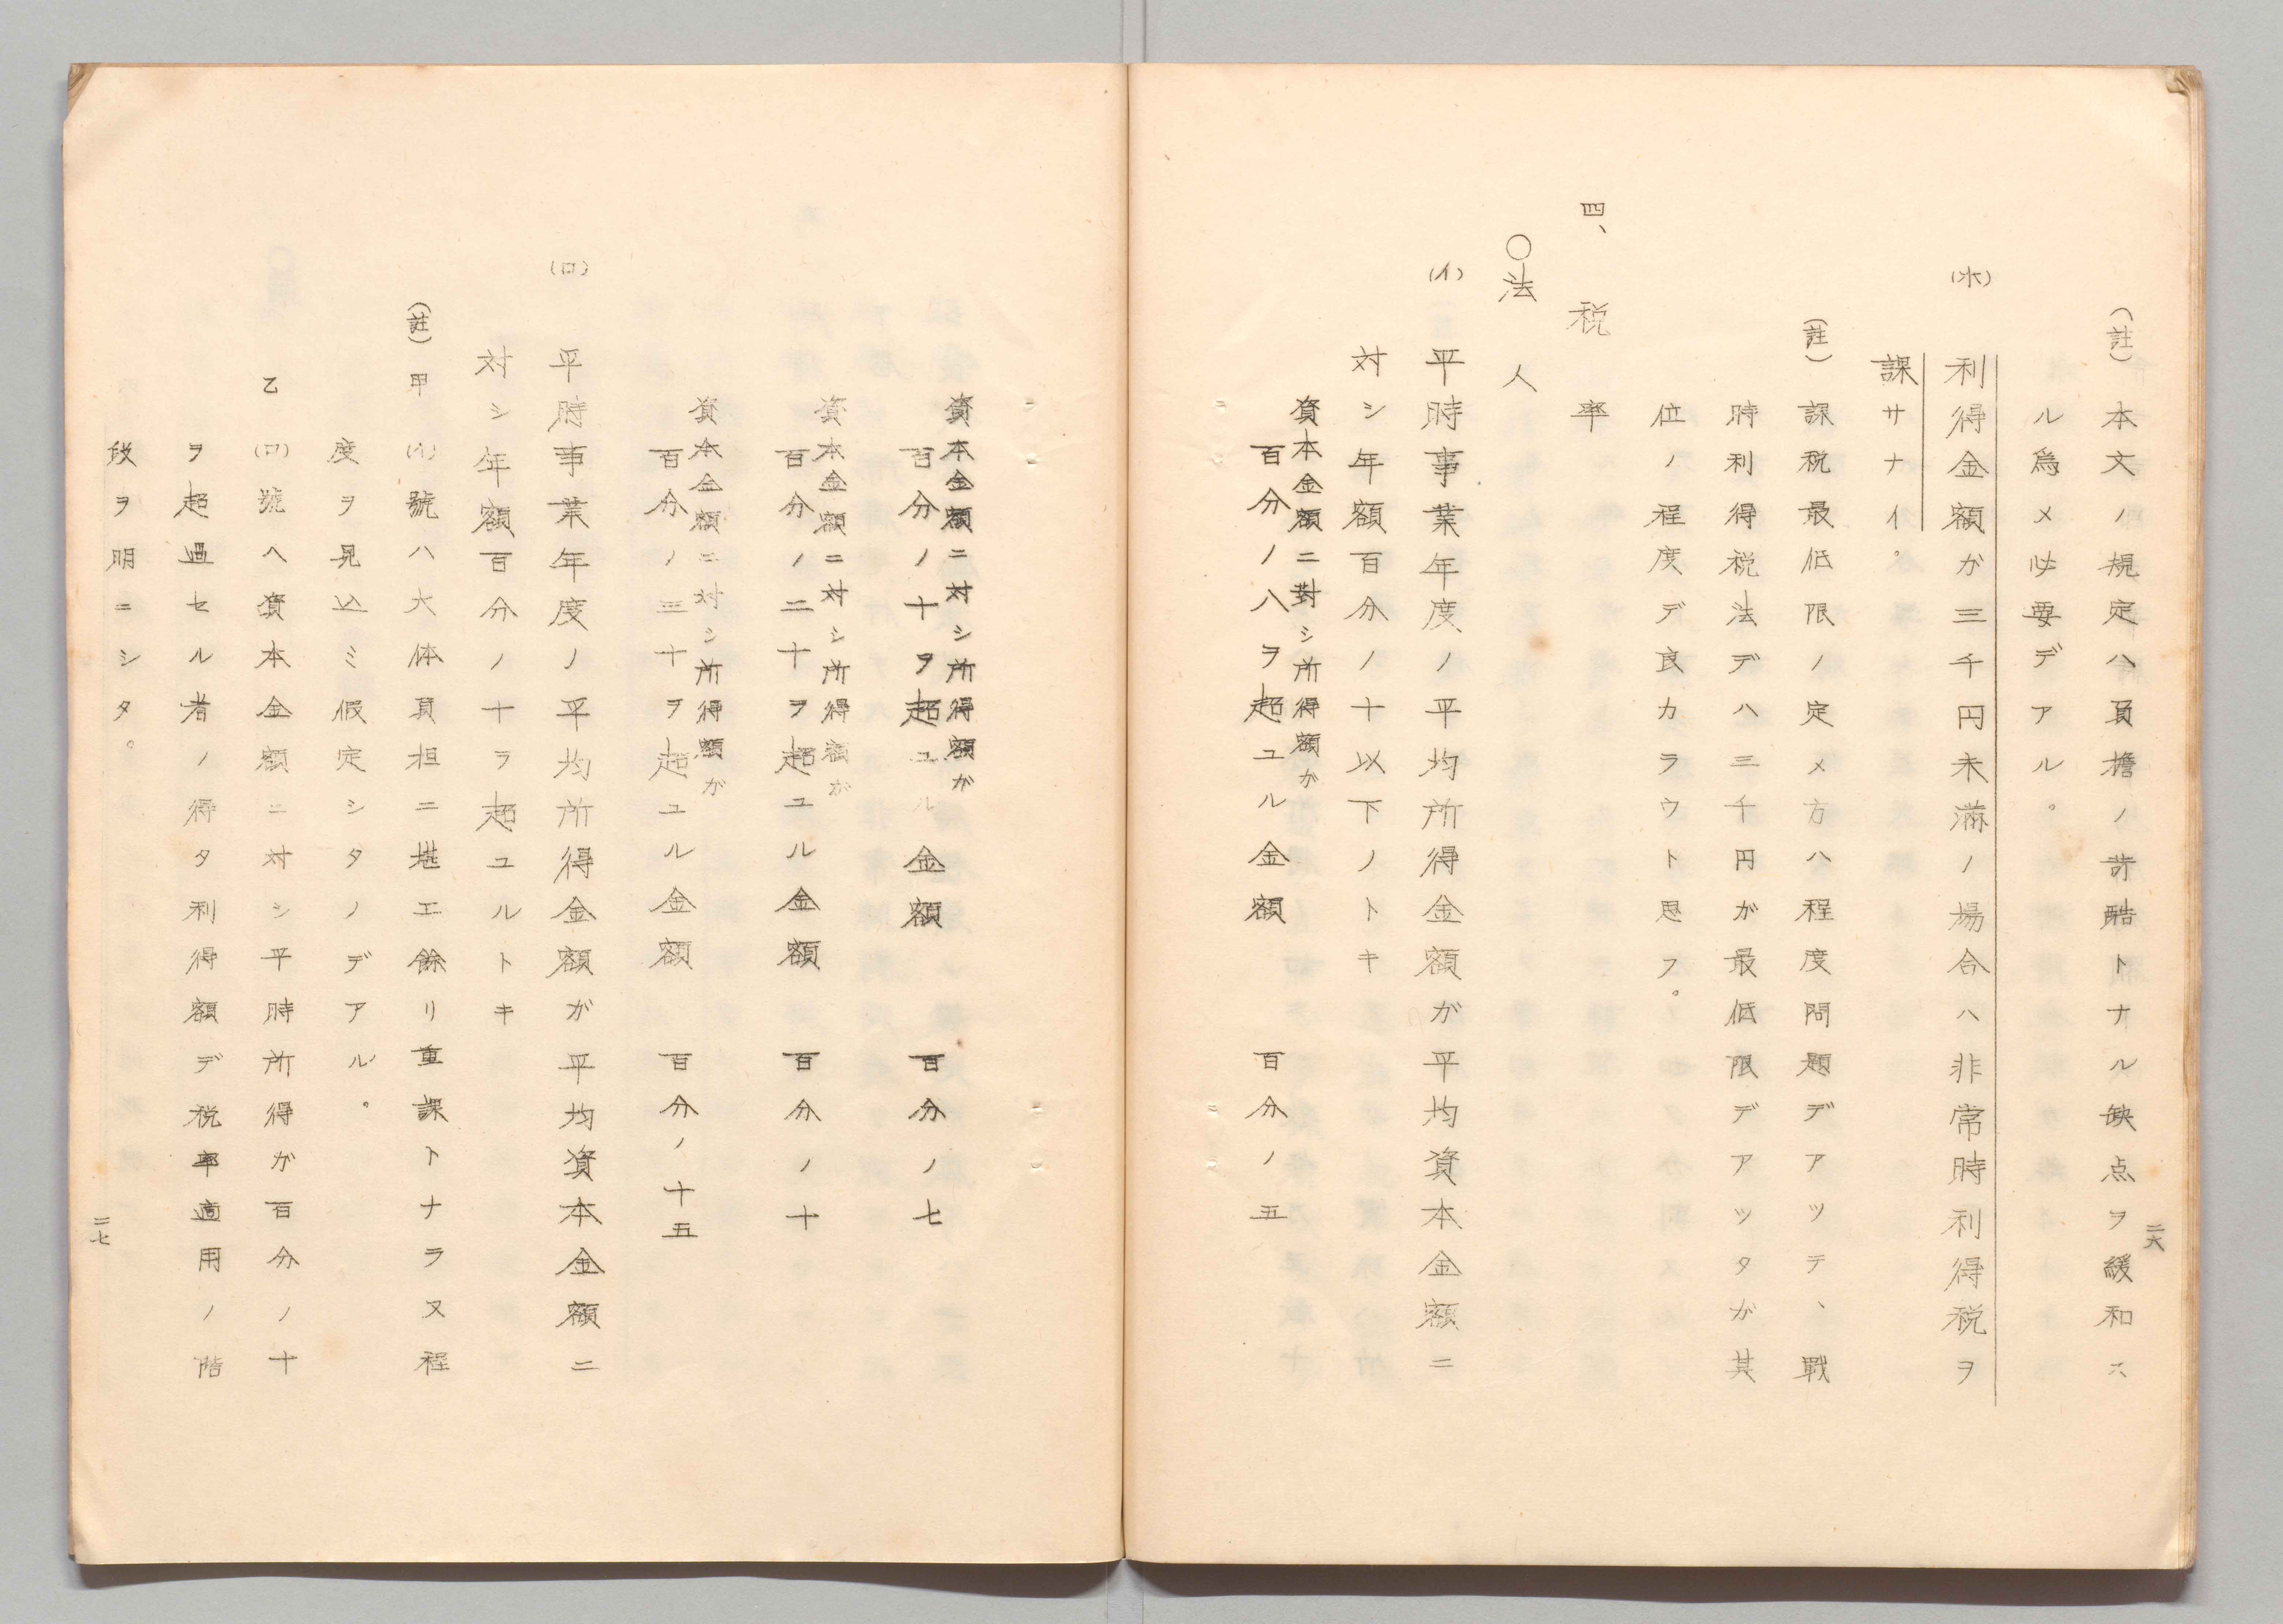 (註)本文ノ規定ハ負擔ノ苛酷トナル缺点ヲ緩和ス
ル爲メ必要デアル。
(ホ) 利得金額が三千円未滿ノ場合ハ非常時利得税ヲ
課サナイ。
(註)課税最低限ノ定メ方ハ程度問題デアツテ、戰
時利得税法デハ三千円が最低限デアツタが其
位ノ程度デ良カラウト思フ。
四、税率
○法人
(イ) 平時事業年度ノ平均所得金額が平均資本金額ニ
対シ年額百分ノ十以下ノトキ
資本金額ニ對シ所得額が
百分ノ八ヲ超ユル金額 百分ノ五
二六
資本金額ニ対シ所得額が
百分ノ十ヲ超ユル金額 百分ノ七
資本金額ニ対シ所得額が
百分ノ二十ヲ超ユル金額 百分ノ十
資本金額ニ対シ所得額が
百分ノ三十ヲ超ユル金額 百分ノ十五
(ロ) 平時事業年度ノ平均所得金額が平均資本金額ニ
対シ年額百分ノ十ヲ超ユルトキ
(註)甲 (イ)號ハ大体負担ニ堪エ餘リ重課トナラヌ程
度ヲ見込ミ假定シタノデアル。
乙 (ロ)號ヘ資本金額ニ対シ平時所得が百分ノ十
ヲ超過セル者ノ得タ利得額デ税率適用ノ階
段ヲ明ニシタ。
二七